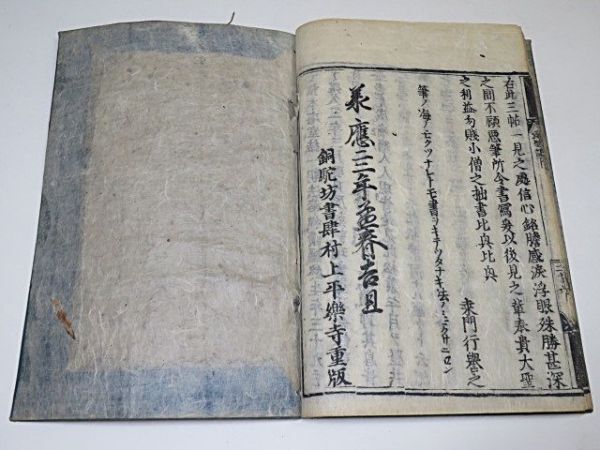 右此三帖一見之處信心銘膽感淚浮眼殊勝甚深
之間不顧惡筆所令書寫矣以後見之輩奉貴大聖
之利益勿賤小僧之拙書比與比與
乘門行譽之
筆ノ海ノモクツナレトモ書ツキテツタナキ法ノ
承應三年孟春吉旦
銅駝坊書肆村上平樂寺重版